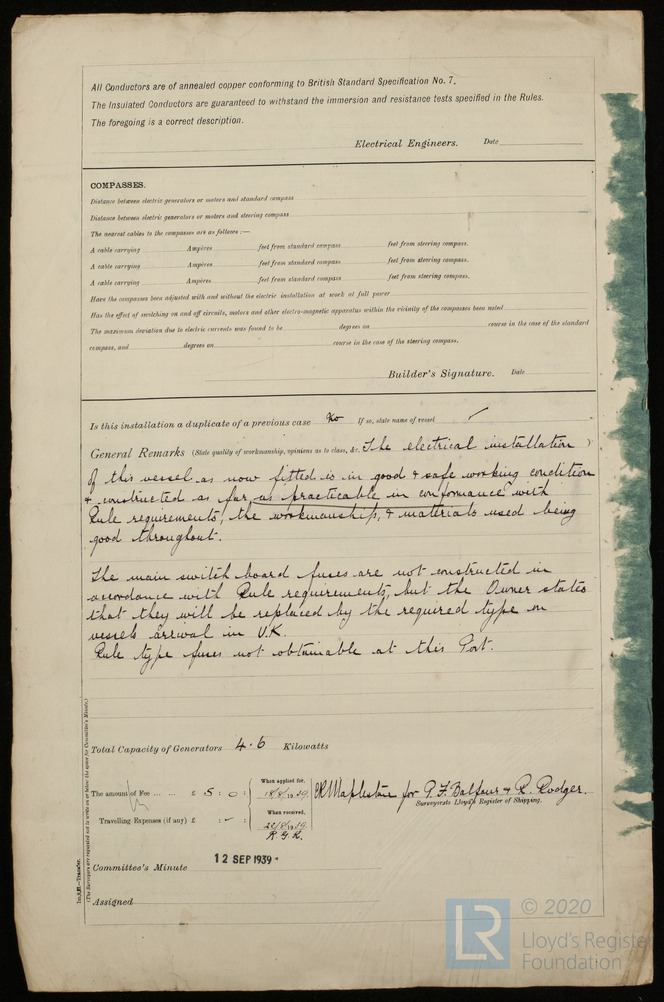 All Conductors are of annealed copper conforming to British Standard Specification No. 7.
The Insulated Conductors are guaranteed to withstand the immersion and resistance tests specified in the Rules.
The foregoing is a correct description.
Electrical Engineers. Date
COMPASSES.
Distance between electric generators or motors and standard compass
Distance between electric generators or motors and steering compass
The nearest cables to the compasses are as follows :—
A cable carrying Ampères feet from standard compass feet from steering compass.
A cable carrying Ampères feet from standard compass feet from steering compass.
A cable carrying Ampères feet from standard compass feet from steering compass.
Have the compasses been adjusted with and without the electric installation at work at full power
Has the effect of switching on and off circuits, motors and other electro-magnetic apparatus within the vicinity of the compasses been noted
The maximum deviation due to electric currents was found to be degrees on course in the case of the standard
compass, and degrees on course in the case of the steering compass.
Builder's Signature. Date
Is this installation a duplicate of a previous case No If so, state name of vessel
General Remarks (State quality of workmanship, opinions as to class, &c. The electrical installation
of this vessel as now fitted is in good & safe working condition
& constructed as far as practicable in conformance with
Rule requirements, the workmanship, & materials used being
good throughout.
The main switch board fuses are not constructed in
accordance with Rule requirements, but the Owner states
that they will be replaced by the required type on
vessels arrival in U.K.
Rule type fuses not obtainable at this Port.
Total Capacity of Generators 4.6 Kilowatts
The amount of Fee ... ... £ 5 : 0 :
When applied for,
18/8/1939
Travelling Expenses (if any) £ : - :
When received,
22/8/1939
R.G.K.
for P. F. Balfour & R. Rodger.
Surveyors to Lloyd's Register of Shipping.
Committee's Minute 12 SEP 1939
Assigned
Im.4,38.—Transfer.
(The Surveyors are requested not to write on or below the space for Committee's Minute.)
LR © 2020
Lloyd's Register
Foundation